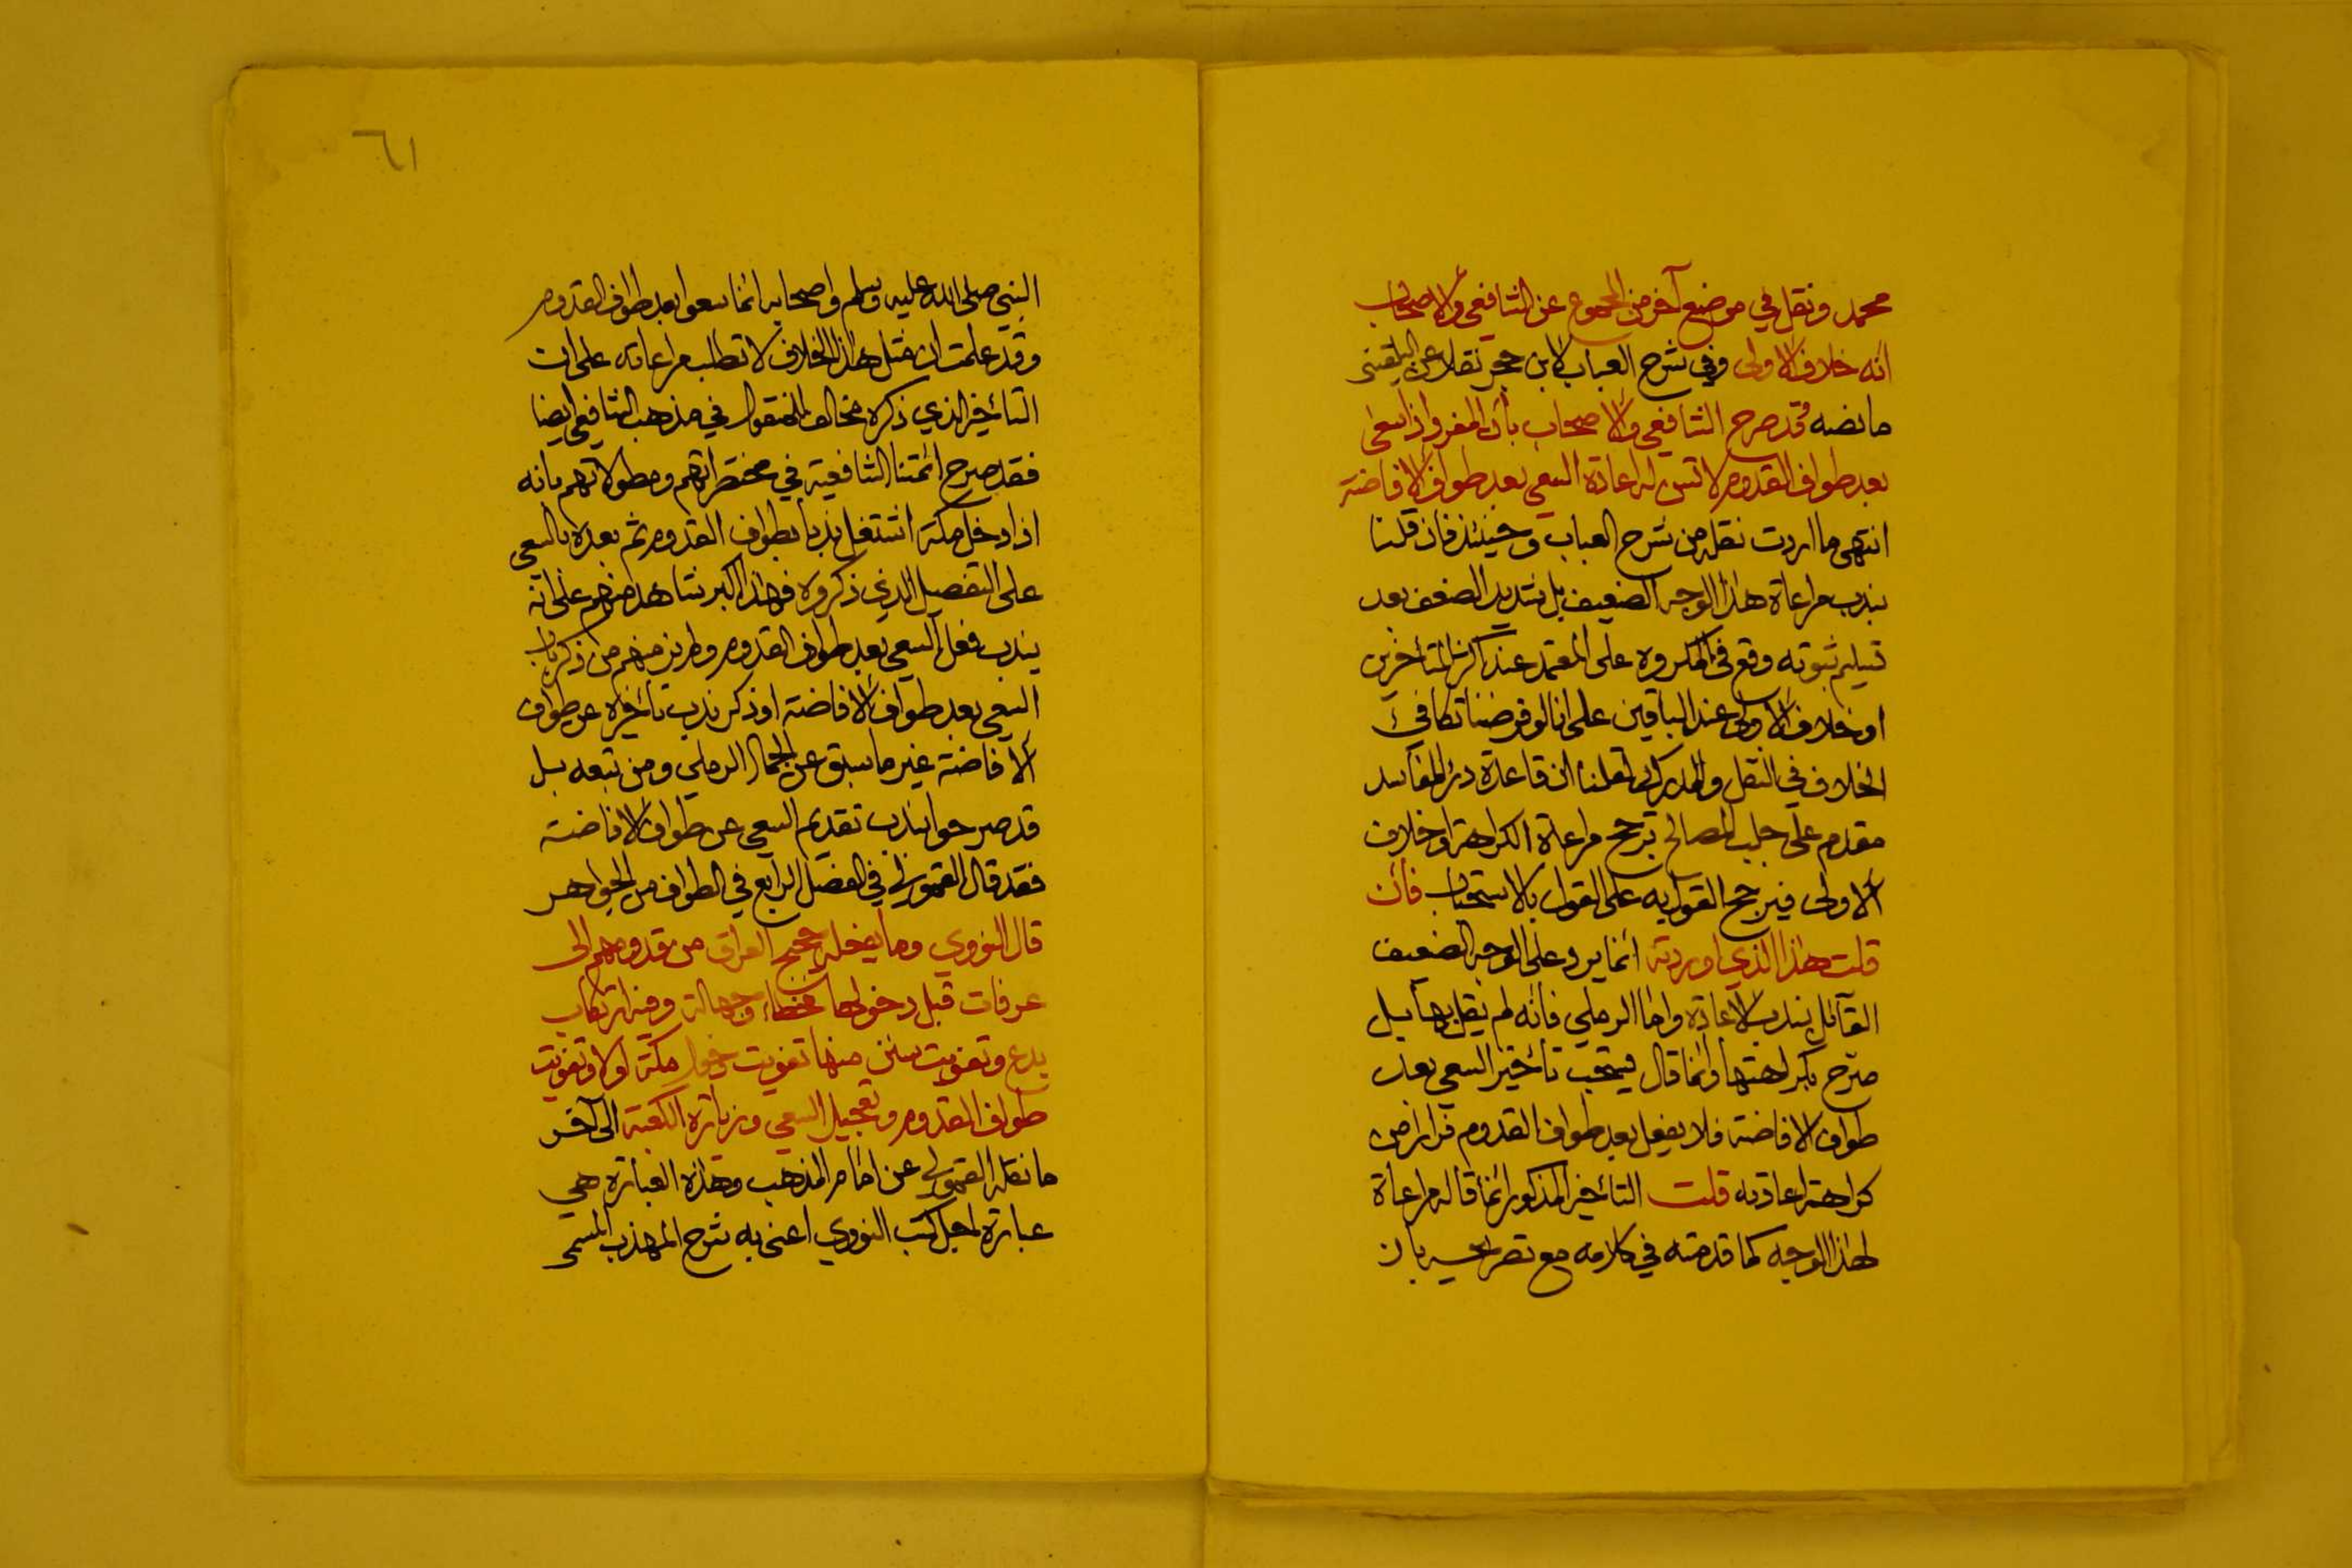 محمد ونقل في موضع آخر من المجموع عن الشافعي والأصحاب
انه خلاف الاولى وفي شرح العباب لابن حجر نقلا عن البلقيني
ما نصه وقد صرح الشافعي والأصحاب بأن المفرد اذا سعى
بعد طواف القدوم لا تسن له اعادة السعي بعد طواف الافاضة
انتهى ما اردت نقله من شرح العباب وحينئذ فاذ قلنا
بندب مراعاة هذا الوجه الضعيف بل شديد الضعف بعد
تسليم ثبوته وقع في المكروه على المعتمد عند اكثر المتأخرين
او خلاف الاولى عند الباقين على انا لو فرضنا تكافئ
الخلاف في النقل والمدرك لقلنا ان قاعدة درء المفاسد
مقدم على جلب المصالح ترجح مراعاة الكراهة او خلاف
الأولى فيرجح القول به على القول بالاستحباب فان
قلت هذا الذي اوردته انما يرد على الوجه الضعيف
القآئل بندب الاعادة واما الرملي فانه لم يقل بها بل
صرح بكراهتها وانما قال يستحب تأخير السعي بعد
طواف الافاضة فلا يفعل بعد طواف القدوم فرارا من
كراهة اعادته قلت التأخير المذكور انما قاله مراعاة
لهذا الوجه كما قدمته في كلامه مع تصريحه بان
٦١
النبي صلى الله عليه وسلم واصحابه انما سعوا بعد طواف القدوم
وقد علمت ان مثل هذا الخلاف لا تطلب مراعاته على ان
التأخير الذي ذكره مخالف للمنقول في مذهب الشافعي ايضا
فقد صرح ائمتنا الشافعية في مختصراتهم ومطولاتهم بانه
اذا دخل مكة اشتغل ندبا بطواف القدوم ثم بعده بالسعي
على التفصيل الذي ذكروه فهذا اكبر شاهد منهم على انه
يندب فعل السعي بعد طواف القدوم ولم نر منهم من ذكر ندب
السعي بعد طواف الأفاضة او ذكر ندب تأخيره عن طواف
ألافاضة غير ما سبق عن الجمال الرملي ومن تبعه بل
قد صرحوا بندب تقديم السعي عن طواف الافاضة
فقد قال القمولي في الفصل الرابع في الطواف من الجواهر
قال النووي وما يفعله حجيج العراق من قدومهم الى
عرفات قبل دخولها مخطا وجهالة وفيه ارتكاب
بدع وتفويت سنن منها تفويت دخول مكة اولا وتفويت
طواف القدوم وتعجيل السعي وزيارة الكعبة الى آخر
ما نقله القمولي عن امام المذهب وهذه العبارة هي
عبارة اجل كتب النووي اعني به شرح المهذب المسمى